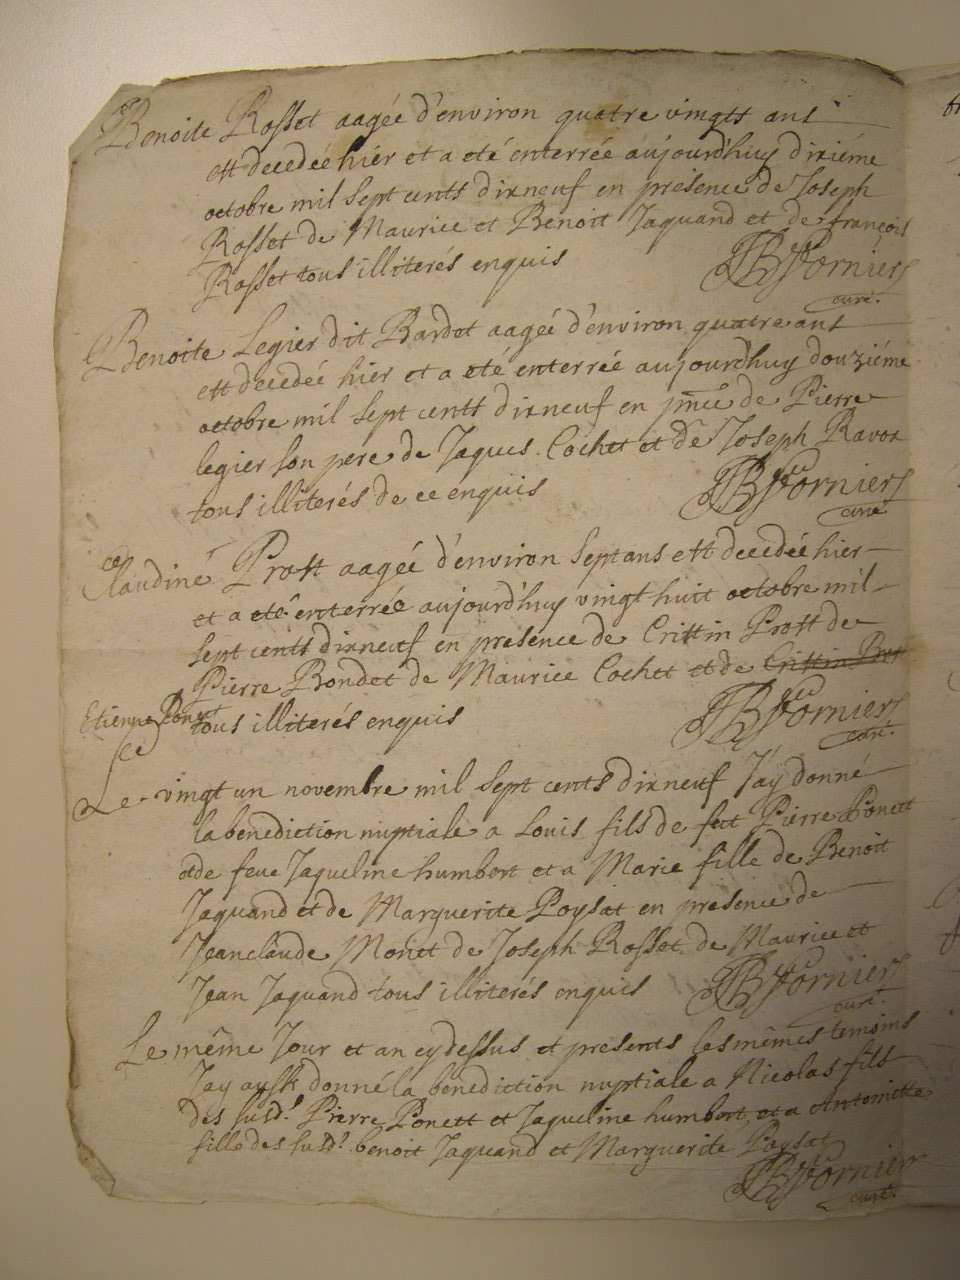 Benoite Rosset aagée d'environ quatre vingts ans
est decedée hier et a eté enterrée aujourd'huy dixiéme
octobre mil sept cents dixneuf en présence de Joseph
Rosset de Maurice et Benoit Jaquand et de françois
Rosset tous illiterés enquis
JB Forniers
curé.
Benoite Legier dit Bardet aagée d'environ quatre ans
est decedée hier et a eté enterrée aujourd'huy douziéme
octobre mil sept cents dixneuf en pnce de Pierre
legier son pere de Jaques Cochet et de Joseph Ravox
tous illiterés de ce enquis
JB Forniers
curé
Claudine Prost aagée d'environ sept ans est decedée hier
et a eté enterrée aujourd'huy vingt huit octobre mil
sept cents dixneuf en presence de Cristin Prost de
Pierre Bondet de Maurice Cochet et de Cristin Prost
Etienne Ponet
tous illiterés enquis
JB Forniers
curé.
Le vingt un novembre mil sept cents dixneuf J'ay donné
la benediction nuptiale a Louis fils de feu Pierre Ponett
et de feue Jaqueline humbert et a Marie fille de Benoit
Jaquand et de Marguerite Poysat en presence de
Jeanclaude Monet de Joseph Rosset de Maurice et
Jean Jaquand tous illiterés enquis
JB Forniers
curé.
Le même Jour et an cydessus et presents les mêmes temoins
Jay donné la benediction nuptiale a Nicolas fils
des susd. Pierre Ponett et Jaqueline humbert et a Antoinette
fille des susd. benoit Jaquand et Marguerite Poysat
JB Forniers
curé.